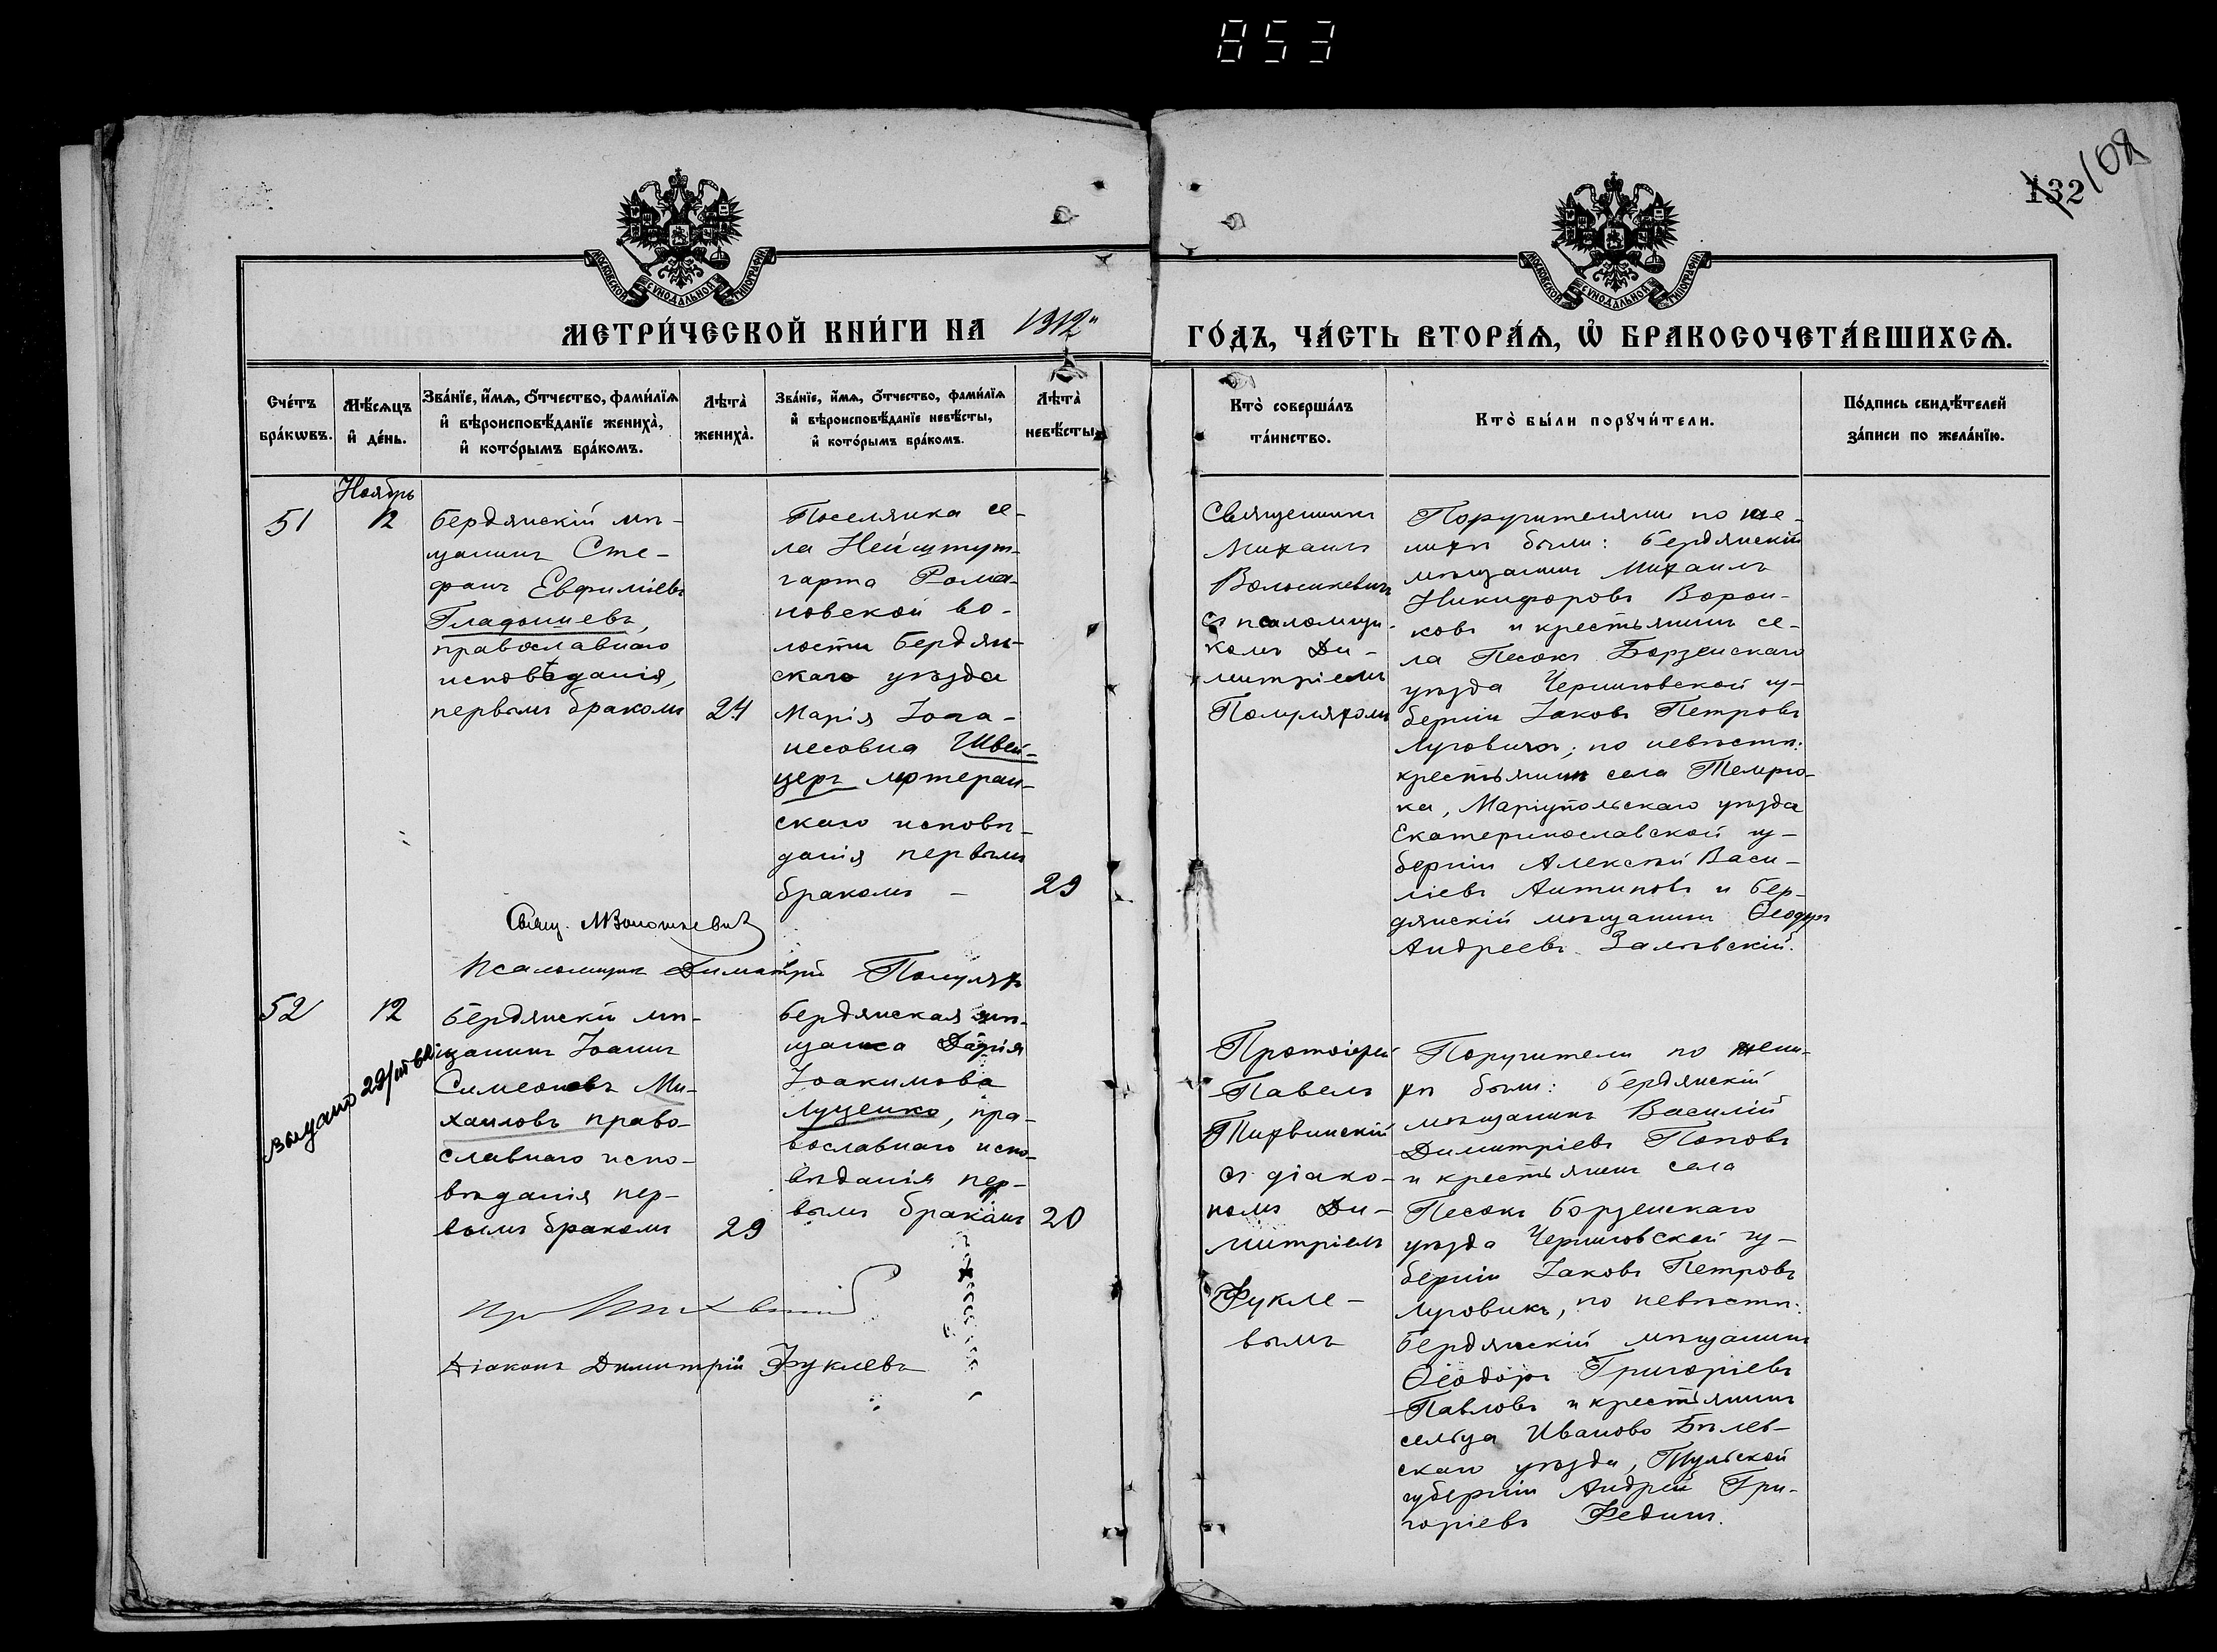 853
132 108
МОСКОВСКОЙ СѴНОДАЛЬНОЙ ТИПОГРАФІИ
МОСКОВСКОЙ СѴНОДАЛЬНОЙ ТИПОГРАФІИ
МЕТРИ́ЧЕСКОЙ КНИ́ГИ НА 1912"
ГО́ДЪ, ЧА́СТЬ ВТОРА́Ѧ, Ѡ҆ БРАКОСОЧЕТА́ВШИХСѦ.
Сче́тъ
бра́кѡвъ.
Мѣ́сяцъ
и҆ де́нь.
Зва́нїе, и҆́мѧ, ѻ҆́тчество, фами́лїѧ
и҆ вѣроисповѣ́данїе жениха̀,
и҆ кото́рымъ бра́комъ.
Лѣта̀
жениха̀.
Зва́нїе, и҆́мѧ, ѻ҆́тчество, фами́лїѧ
и҆ вѣроисповѣ́данїе невѣ́сты,
и҆ кото́рымъ бра́комъ.
Лѣта̀
невѣ́сты.
Кто̀ соверша́лъ
та́инство.
Кто̀ бы́ли порꙋчи́тели.
По́дпись свидѣ́телей
за́писи по жела́нїю.
Ноябрь
51
12
Бердянскій мѣ-
щанинъ Сте-
фанъ Евфиміевъ
Гладышевъ,
православнаго
исповѣданія,
первымъ бракомъ
24
Поселянка се-
ла Нейштут-
гарта Рома-
новской во-
лости Бердян-
скаго уѣзда
Марія Іога-
несовна Швей-
церъ лютеран-
скаго исповѣ-
данія первымъ
бракомъ -
29
Священникъ
Михаилъ
Волошкевичъ
съ псаломщи-
комъ Ди-
митріемъ
Полуляхомъ
Поручителями по же-
нихѣ были: Бердянскій
мѣщанинъ Михаилъ
Никифоровъ Ворон-
ковъ и крестьянинъ се-
ла Песокъ Борзенскаго
уѣзда Черниговской гу-
берніи Іаковъ Петровъ
Луговикъ; по невѣстѣ:
крестьянинъ села Темрю-
ка, Маріупольскаго уѣзда
Екатеринославской гу-
берніи Алексѣй Васи-
ліевъ Антиповъ и Бер-
дянскій мѣщанинъ Ѳеодоръ
Андреевъ Залѣвскій.
Свящ. М Волошкевичъ
Псаломщикъ Димитрій Полуляхъ
52
12
выдано
Бердянскій мѣ-
щанинъ Іоаннъ
Симеоновъ Ми-
хаиловъ право-
славнаго испо-
вѣданія пер-
вымъ бракомъ
29
Бердянская мѣ-
щанка Дарія
Іоакимова
Луценко, пра-
вославнаго испо-
вѣданія пер-
вымъ бракомъ
20
Протоіерей
Павелъ
Тихвинскій
съ діако-
номъ Ди-
митріемъ
Фукле-
вымъ
Поручители по жени-
хѣ были: Бердянскій
мѣщанинъ Василій
Димитріевъ Поповъ
и крестьянинъ села
Песокъ Борзенскаго
уѣзда Черниговской гу-
берніи Іаковъ Петровъ
Луговикъ, по невѣстѣ:
Бердянскій мѣщанинъ
Ѳеодоръ Григоріевъ
Павловъ и крестьянинъ
сельца Иваново Бѣлев-
скаго уѣзда, Тульской
губерніи Андрей Гри-
горіевъ Фединъ.
Діаконъ Димитрій Фуклевъ